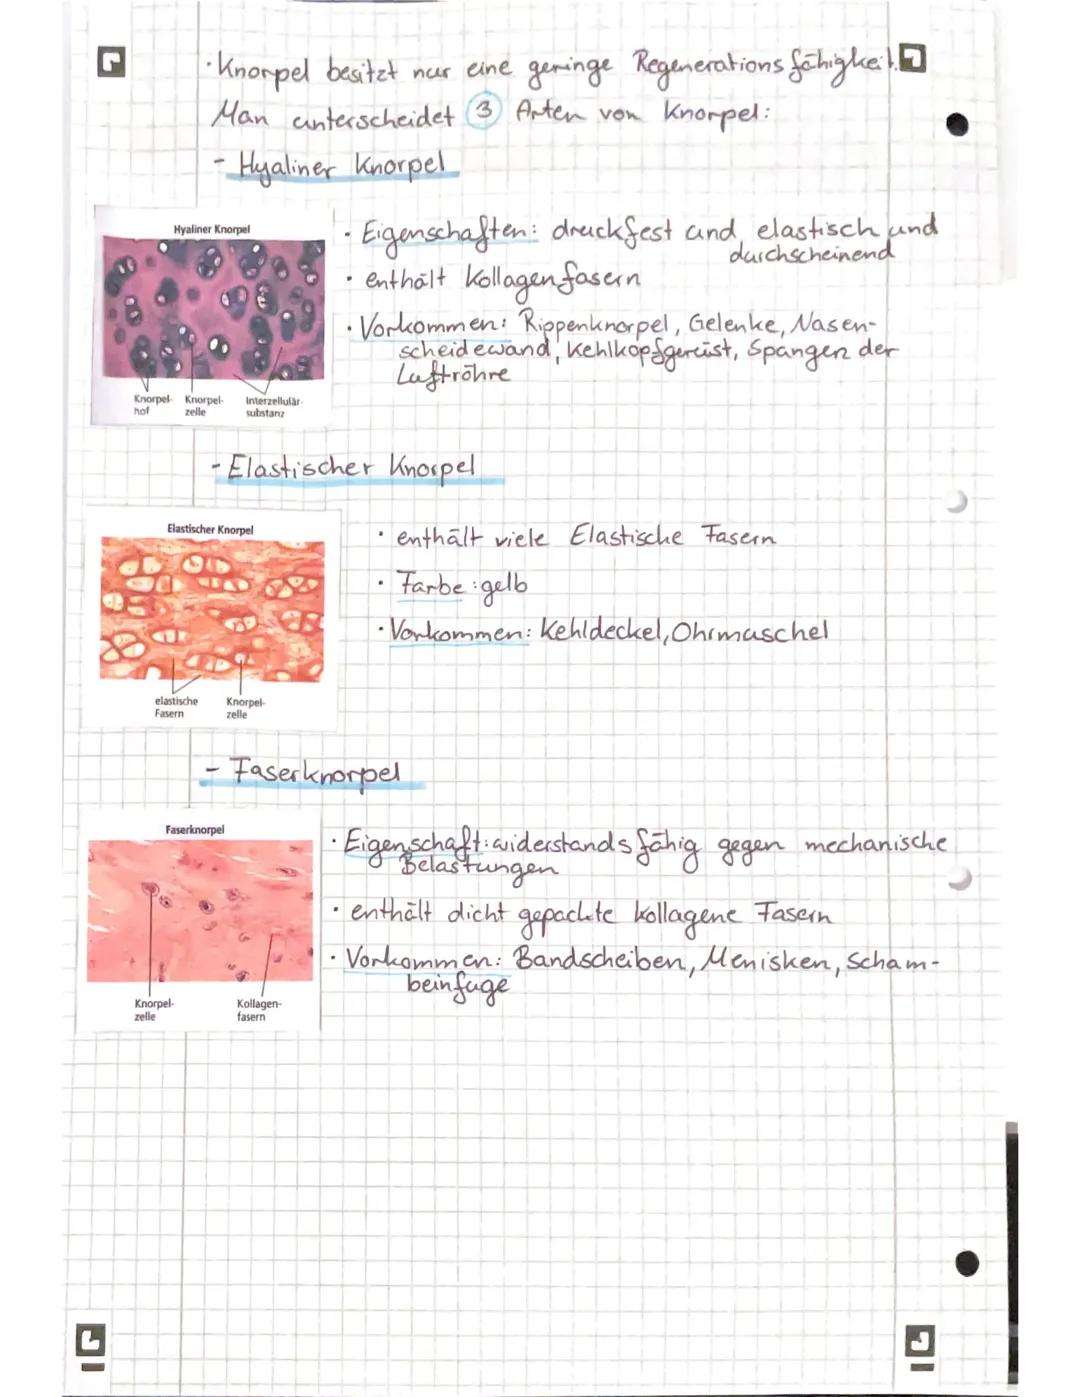 · Knorpel besitzt nur eine geringe Regenerationsfähigkeit.
Man unterscheidet 3 Arten von Knorpel:
- Hyaliner Knorpel
Hyaliner Knorpel
Knorpel-
hof
Knorpel-
zelle
Interzellulär-
substanz
· Eigenschaften: druckfest und elastisch und
durchscheinend
· enthält Kollagenfasern
· Vorkommen: Rippenknorpel, Gelenke, Nasen-
scheidewand, Kehlkopfgerüst, Spangen der
Luftröhre
- Elastischer Knorpel
Elastischer Knorpel
elastische
Fasern
Knorpel-
zelle
· enthält viele Elastische Fasern
· Farbe: gelb
· Vorkommen: Kehldeckel, Ohrmuschel
- Faserknorpel
Faserknorpel
Knorpel-
zelle
Kollagen-
fasern
· Eigenschaft: widerstandsfähig gegen mechanische
Belastungen
· enthält dicht gepackte kollagene Fasern
· Vorkommen: Bandscheiben, Menisken, Scham-
beinfuge